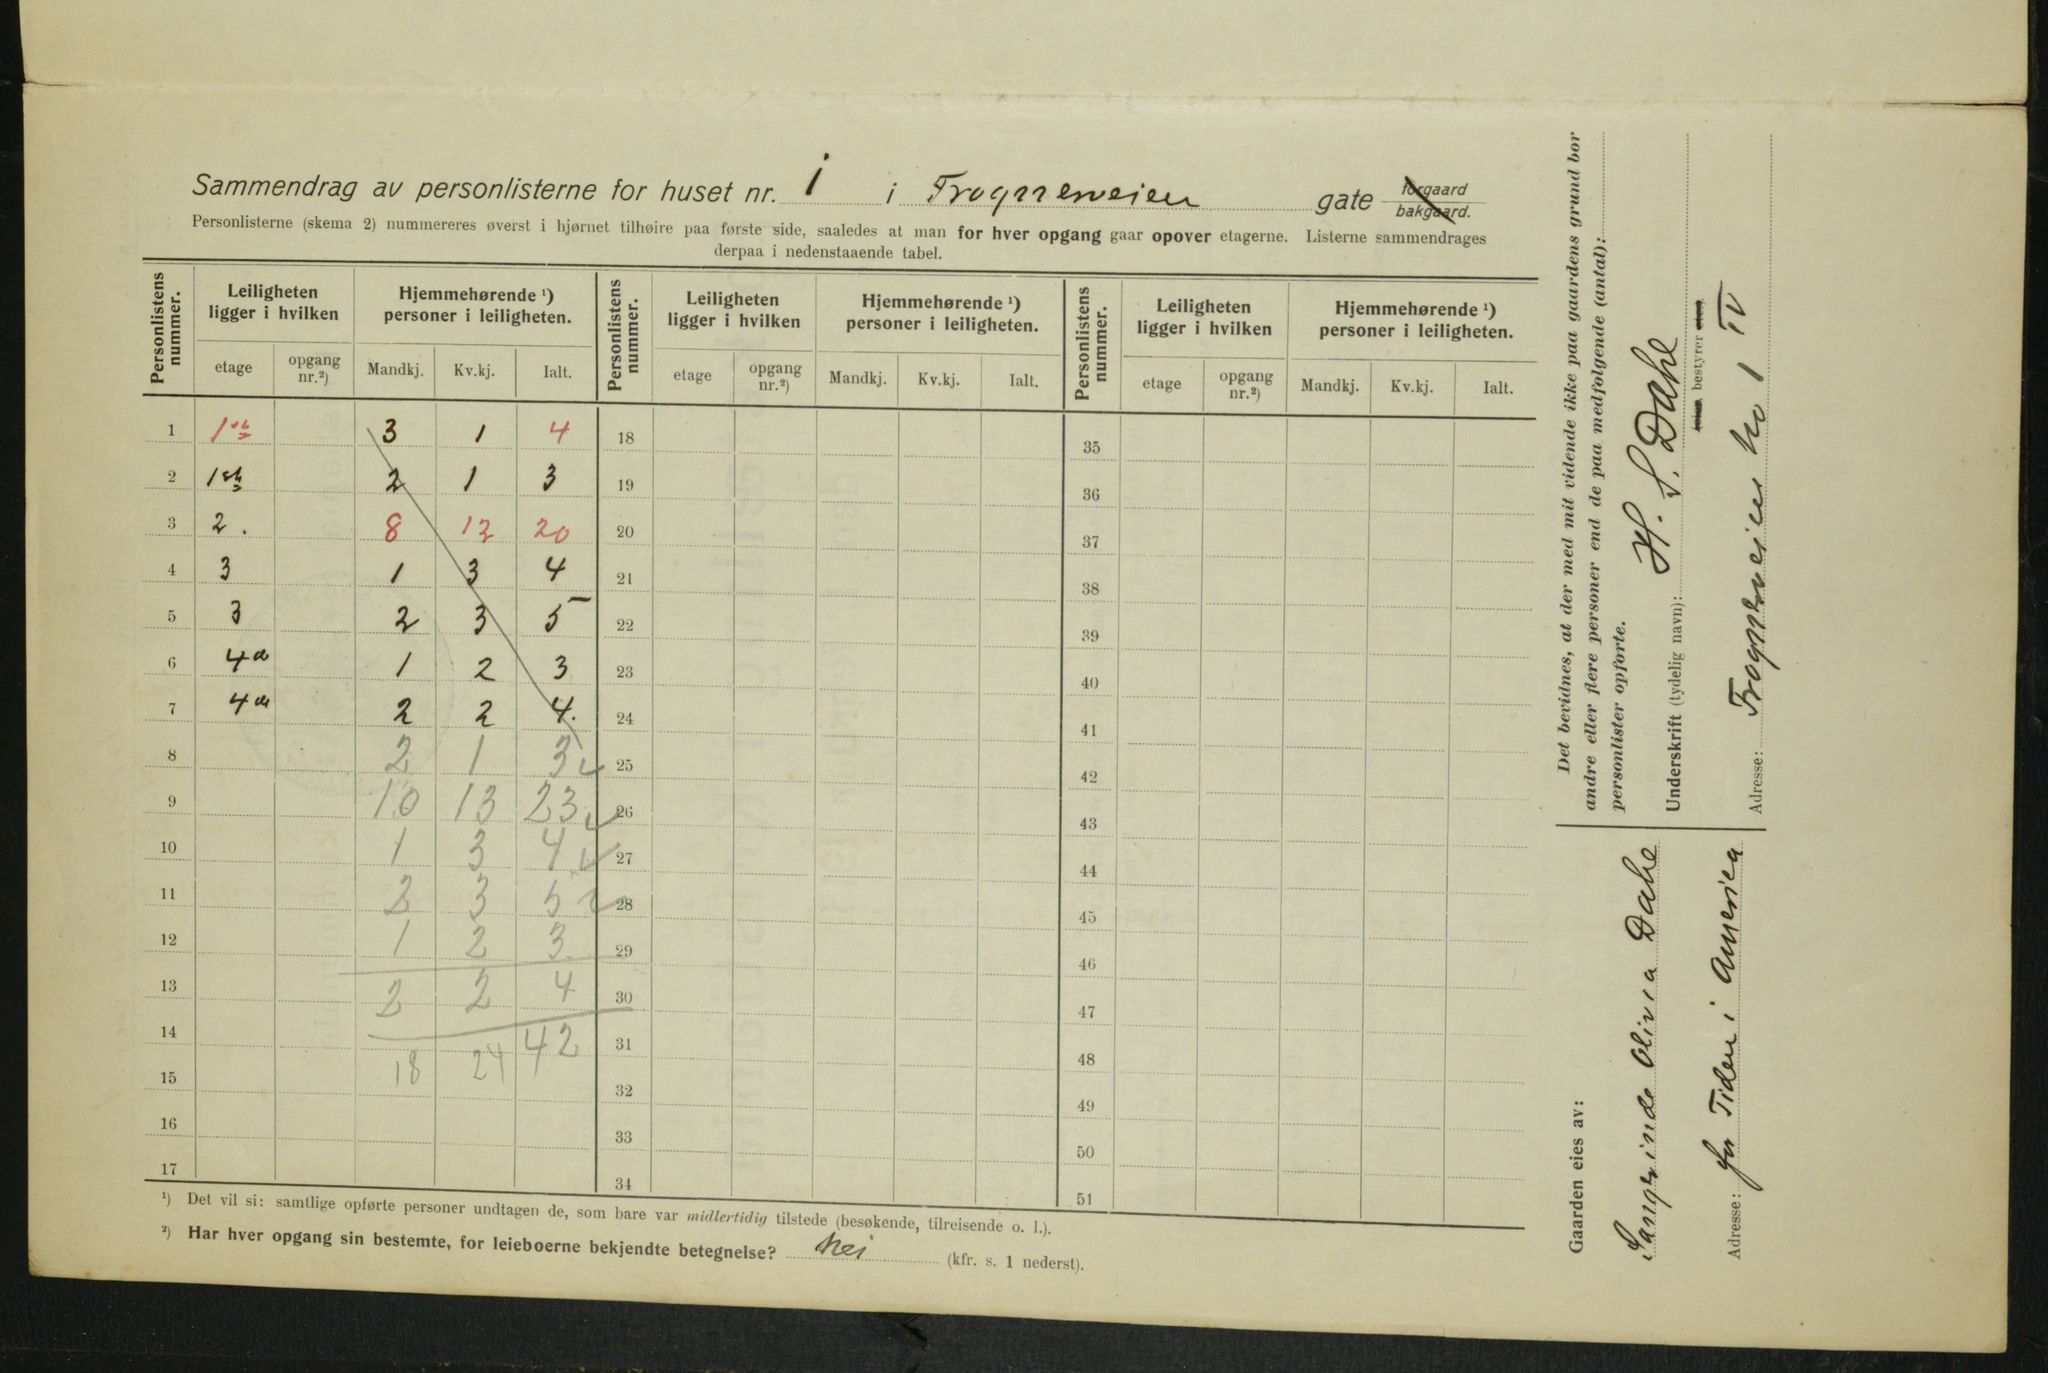 Sammendrag av personlisterne for huset nr. 1 i Frognerveien gate forgaard bakgaard.
Personlisterne (skema 2) nummereres øverst i hjørnet tilhøire paa første side, saaledes at man for hver opgang gaar opover etagerne. Listerne sammendrages
derpaa i nedenstaaende tabel.
Personlistens nummer. Leiligheten ligger i hvilken Hjemmehørende ¹) personer i leiligheten. Personlistens nummer. Leiligheten ligger i hvilken Hjemmehørende ¹) personer i leiligheten. Personlistens nummer. Leiligheten ligger i hvilken Hjemmehørende ¹) personer i leiligheten.
etage opgang nr.²) Mandkj. Kv.kj. Ialt. etage opgang nr.²) Mandkj. Kv.kj. Ialt. etage opgang nr.²) Mandkj. Kv.kj. Ialt.
1 1st 3 1 4 18 35
2 1ste 2 1 3 19 36
3 2. 8 12 20 20 37
4 3 1 3 4 21 38
5 3 2 3 5 22 39
6 4de 1 2 3 23 40
7 4de 2 2 4. 24 41
8 2 1 3 25 42
9 10 13 23 26 43
10 1 3 4 27 44
11 2 3 5 28 45
12 1 2 3 29 46
13 2 2 4 30 47
14 42 31 48
15 18 24 32 49
16 33 50
17 34 51
¹) Det vil si: samtlige opførte personer undtagen de, som bare var midlertidig tilstede (besøkende, tilreisende o. l.).
²) Har hver opgang sin bestemte, for leieboerne bekjendte betegnelse? Nei (kfr. s. 1 nederst).
Det bevidnes, at der med mit vidende ikke paa gaardens grund bor
andre eller flere personer end de paa medfølgende (antal):
personlister opførte.
Underskrift (tydelig navn): H. S. Dahl
bestyrer
Adresse: Frognerveien No 1 IV
Gaarden eies av:
Olivia Dahl
Adresse: for Tiden i Amerika